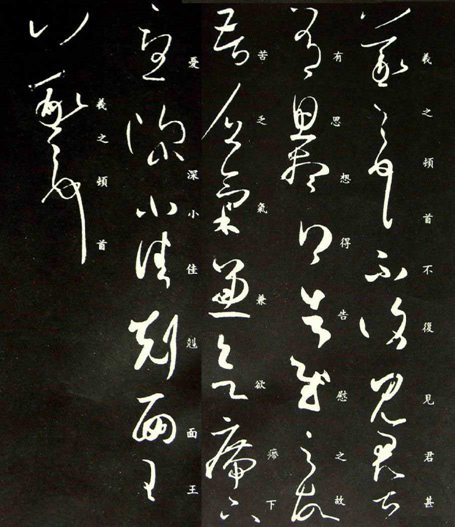 羲之頓首不復見君甚
有思想得告慰之故
苦乏氣兼欲下
憂深小佳剋面王
羲之頓首